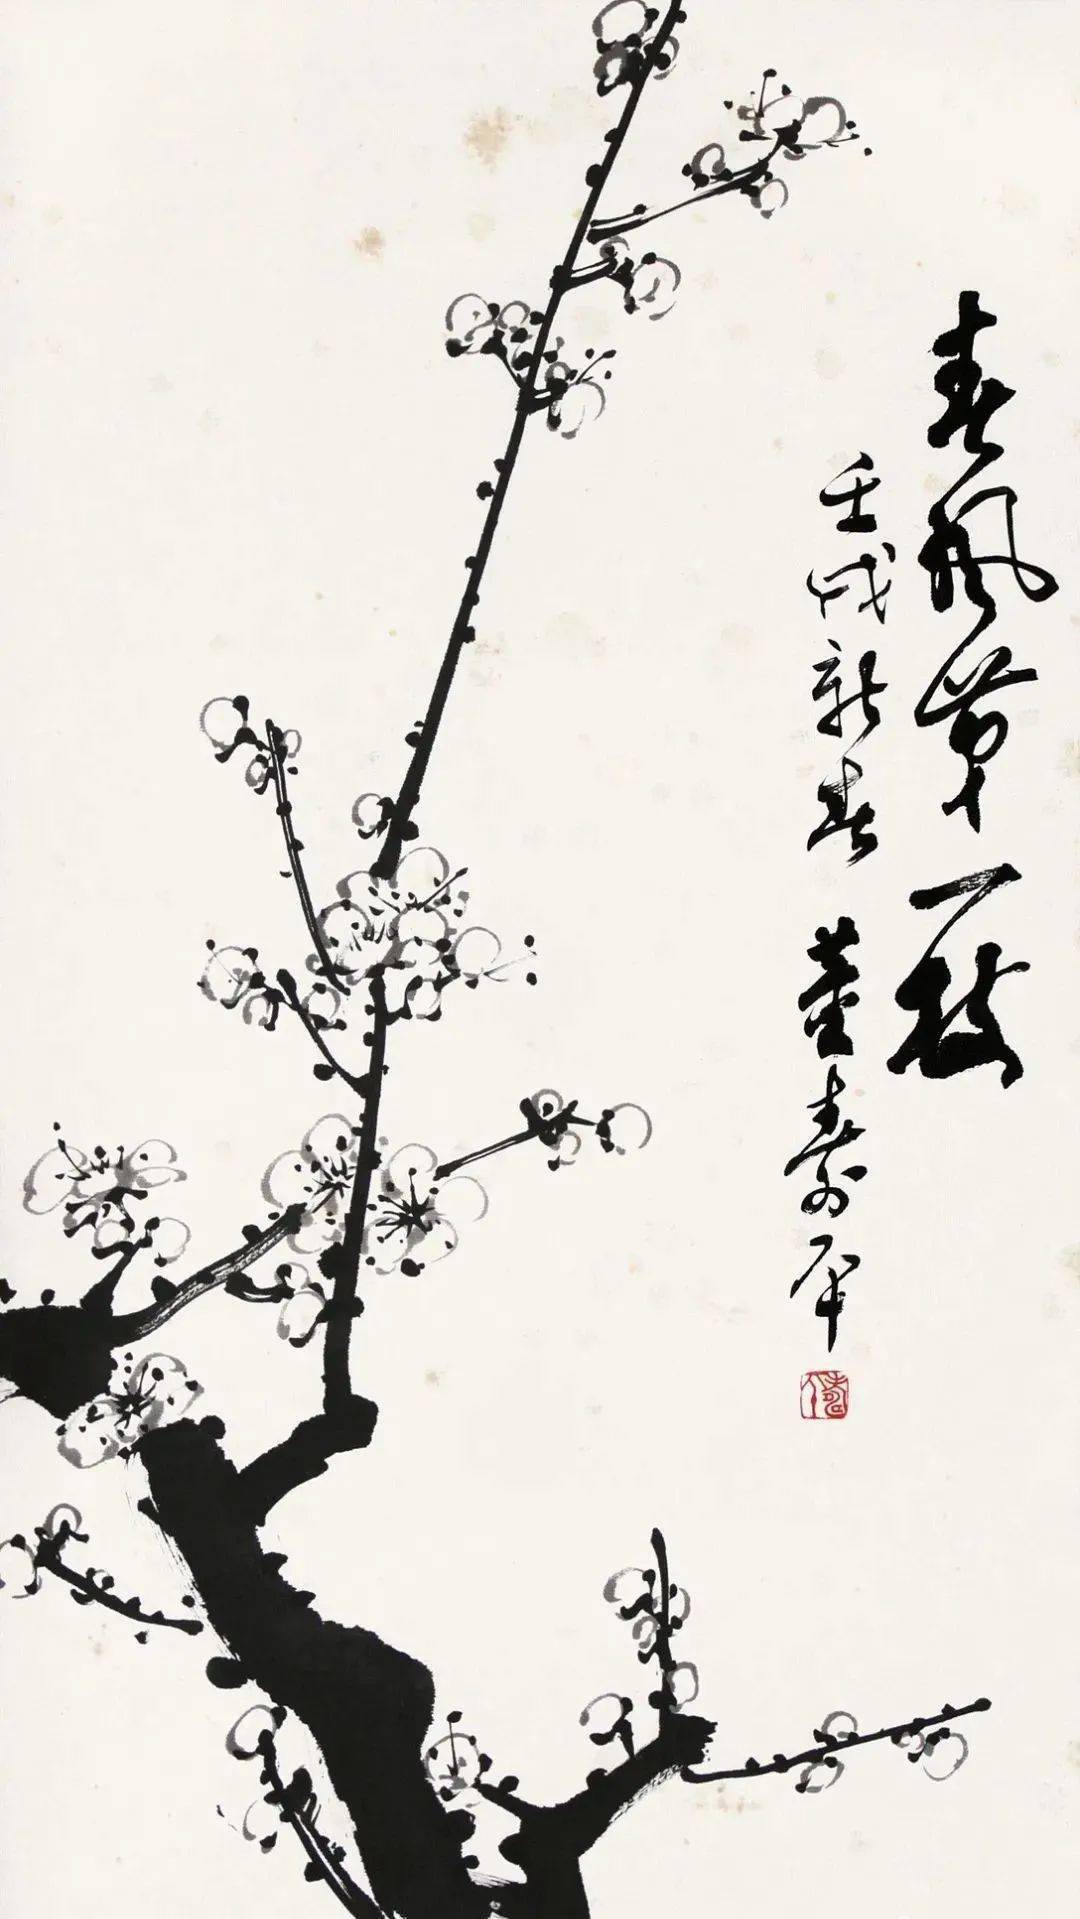 春风第一枝
壬戌新春 董寿平